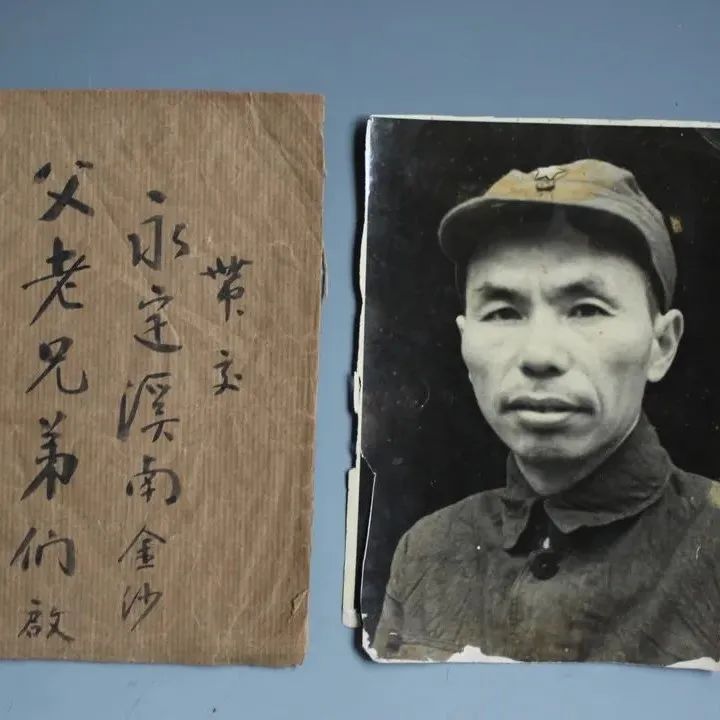 带交
永定溪南金沙
父老兄弟们啟